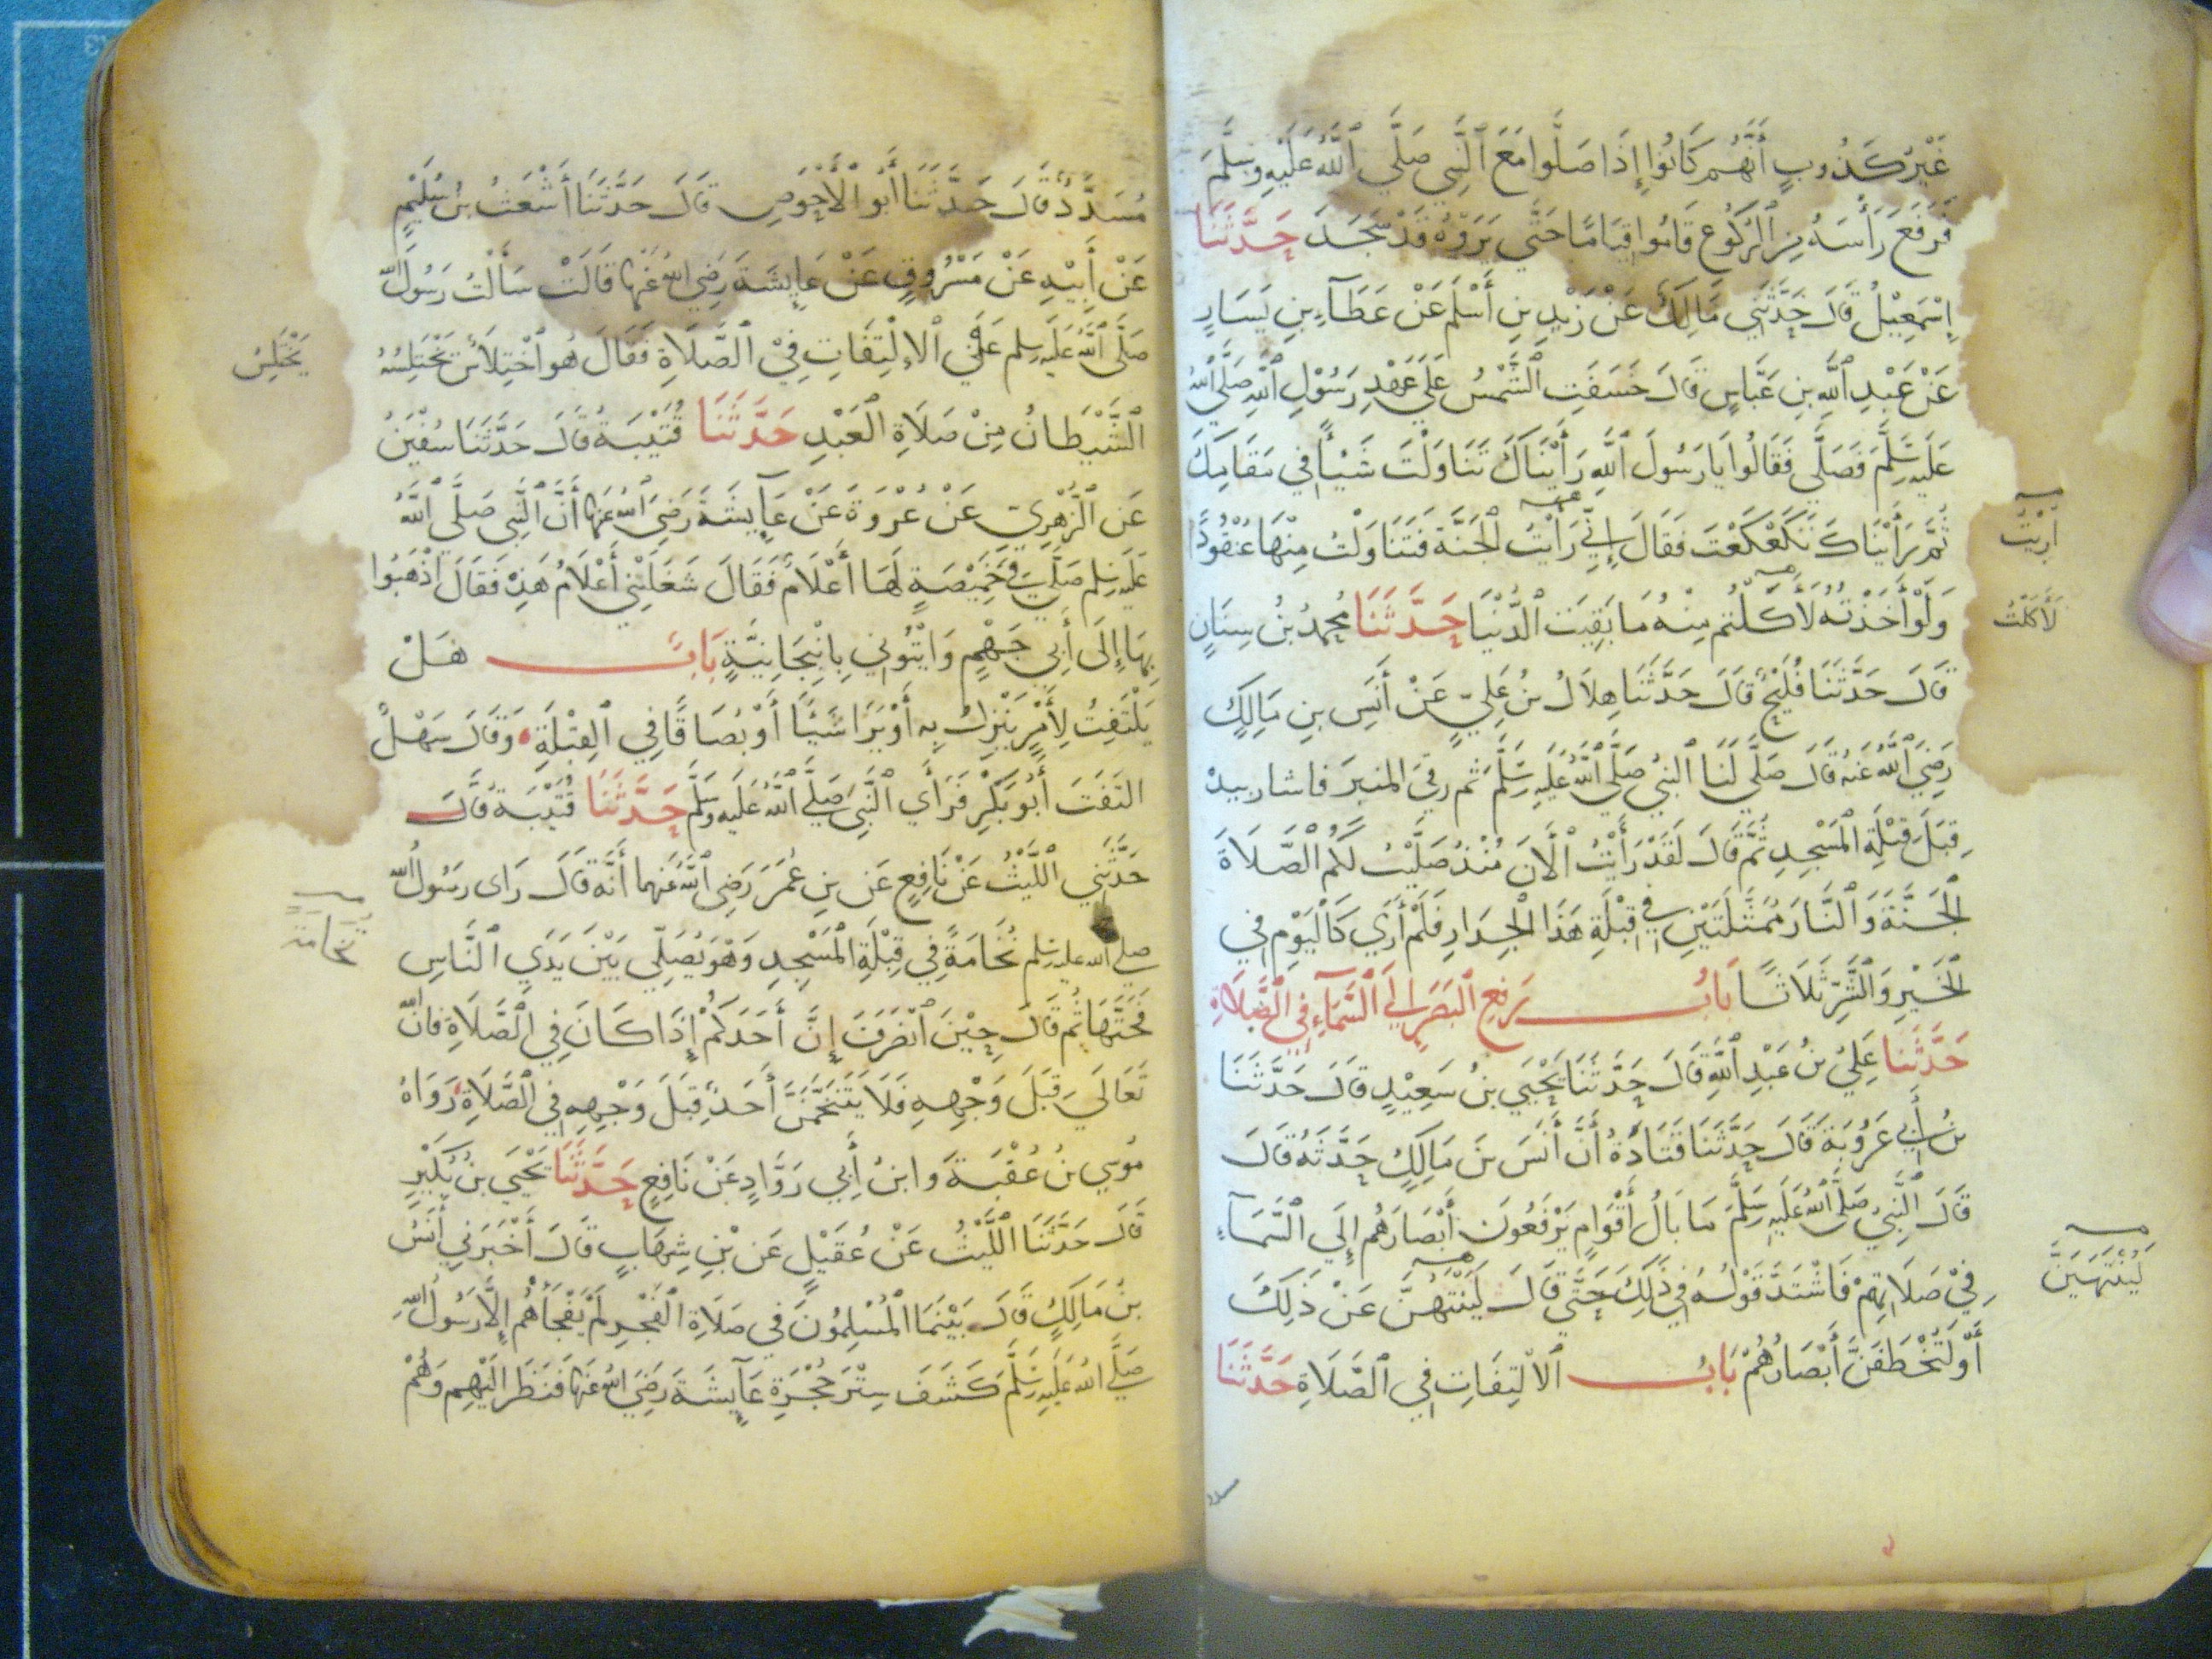 غَيْرُ كَذُوبٍ أَنَّهُم كَانُوا إِذَا صَلَّوا مَعَ ٱلنَّبِي صَلَّي ٱللَّهُ عَلَيْهِ وسلَّمَ
فَرَفَعَ رَأْسَهُ مِنَ ٱلرُّكُوع قَامُوا قِيَامًا حَتَّي يَرَوْهُ قَدْ سَجَدَ حَدَّثَنَا
إِسْمٰعِيْلُ قَالَ حَدَّثَنِي مَالِكٌ عَنْ زَيْدِ بنِ أَسْلَمَ عَنْ عَطَآءِ بنِ يَسَارٍ
عَنْ عَبْدِ ٱللَّهِ بنِ عَبَّاسٍ قَالَ خَسَفَتِ ٱلشَّمْسُ عَلَي عَهْدِ رَسُوْلِ ٱللَّهِ صَلَّي ٱللَّهُ
عَلَيهِ سَلَّمَ فَصَلَّي فَقَالُوا يَا رَسُولَ ٱللَّهِ رَأَيْنَاكَ تَنَاوَلْتَ شَيْئاً فِي مَقَامِكَ
ثُمَّ رَأَيْنَاكَ تَكَعْكَعْتَ فَقَالَ إِنِّي رَأَيْتُ ٱلْجَنَّةَ فَتَنَاوَلْتُ مِنْهَا عُنْقُودًا
أُرِيْتُ
وَلَوْ أَخَذْتُهُ لَأَكَلْتُم مِنْهُ مَا بَقِيَتِ ٱلدُّنْيَا حَدَّثَنَا مُحمدُ بنُ سِنَانٍ
لَأَكَلْتُ
قَالَ حَدَّثَنَا فُلَيْحٌ قَالَ حَدَّثَنَا هِلَالُ بنُ عَلِيٍّ عَنْ أَنَسِ بنِ مَالِكٍ
رَضِيَ ٱللَّهُ عَنهُ قَالَ صَلَّي لَنَا ٱلنبيُ صَلَّي ٱللَّهُ عَلَيهِ سَلَّمَ ثم رقيَ المنبرَ فاشار بيدهْ
قِبَلَ قِبْلَةِ الْمَسْجِدِ ثُمَّ قَالَ لَقَدْ رَأَيْتُ ٱلْآنَ مُنْذُ صَلَّيْتُ لَكُم ٱلصَّلَاةَ
ٱلْجَنَّةَ وَٱلنَّارَ مُمَثَّلَتَيْنِ فِي قِبْلَةِ هَذَا ٱلْجِدَارِ فَلَمْ أَرَي كَٱلْيَوْمِ فِي
ٱلْخَيْرِ وَٱلشَّرِّ ثَلَاثًا بَابُ رَفعِ ٱلبَصَرِ إِلَي ٱلسَّمَآءِ فِي ٱلصَّلَاةِ
حَدَّثَنَا عَلِيُ بنُ عَبْدِ ٱللَّهِ قَالَ حَدَّثَنَا يَحْيَي بنُ سَعِيْدٍ قَالَ حَدَّثَنَا
بنُ أَبِي عَرُوْبَةَ قَالَ حَدَّثَنَا قَتَادَةُ أَنَّ أَنَسَ بنَ مَالِكٍ حَدَّثَهُ قَالَ
قَالَ ٱلنَّبِيُ صَلَّي ٱللَّهُ عَلَيهِ سَلَّمَ مَا بَالُ أَقْوَامٍ يَرْفَعُونَ أَبْصَارَهُم إِلَي ٱلسَّمَآءِ
فِيْ صَلَاتِهِمْ فَاشْتَدَّ قَوْلُهُ فِي ذَلِكَ حَتَّي قَالَ لَيَنْتَهُنَّ عَنْ ذَلِكَ
لَيُنْتَهَيَنَّ
أَوْ لَتُخْطَفَنَّ أَبْصَارُهُمْ بَابُ الالْتِفَاتِ فِي ٱلصَّلَاةِ حَدَّثَنَا
مُسَدَّدٌ قَالَ حَدَّثَنَا أَبُو ٱلْأَحْوَصِ قَالَ حَدَّثَنَا أَشْعَثُ بنُ سُلَيْمٍ
عَنْ أَبِيْهِ عَنْ مَسْرُوقٍ عَنْ عَايِشَةَ رَضِيَ ٱللَّهُ عَنْهَا قَالَتْ سَأَلْتُ رَسُولَ ٱللَّهِ
صَلَّي ٱللَّهُ عَلَيهِ سلم عَنِ ٱلإلْتِفَاتِ فِيْ ٱلصَّلَاةِ فَقَالَ هُو ٱخْتِلَاسٌ يَخْتَلِسُهُ
يَخْتَلِسُ
ٱلشَّيْطَانُ مِنْ صَلَاةِ ٱلْعَبْدِ حَدَّثَنَا قُتَيْبَةُ قَالَ حَدَّثَنَا سُفْيٰنُ
عَنِ ٱلزُّهْرِيِّ عَنْ عُرْوَةَ عَنْ عَآيِشَةَ رَضِيَ ٱللَّهُ عَنهَا أَنَّ ٱلنَّبِي صَلَّي ٱللَّهُ
عَلَيهِ سلم صَلَّي فِي خَمِيْصَةٍ لَهَا أَعْلَامٌ فَقَالَ شَغَلَتْنِي أَعْلَامُ هَذِهْ فَقَالَ اذْهَبُوا
بِهَا إِلَى أَبِي جَهْمٍ وَايْتُونِي بِانْبِجَانِيَّةٍ بَابُ هَلْ
يَلْتَفِتُ لِأَمْرٍ يَنْزِلُ بِهِ أَوْ يَرَا شَيْئًا أَوْ بُصَاقًا فِي ٱلقِبْلَةِ وَقَالَ سَهْلٌ
التَفَتَ أَبُو بَكْرٍ فَرَأَي ٱلنَّبِيَ صَلَّي ٱللَّهُ عَلَيهِ وسَلَّم حَدَّثَنَا قُتَيْبَةُ قَالَ
حَدَّثَنِي ٱللَّيْثُ عَنْ نَافِعٍ عَن بنِ عُمَرَ رَضِيَ ٱللَّهُ عَنْهما أَنَّهُ قَالَ رَاى رَسُولُ ٱللَّهِ
صلي الله عليه سلم نُخَامَةً فِي قِبْلَةِ ٱلْمَسْجِدِ وَهْوَ يُصَلِّي بَيْنَ يَدَيِ ٱلنَّاسِ
نُخَامَةً
فَحَتَّهَا ثُم قَالَ حِيْنَ ٱنْصَرَفَ إِنَّ أَحَدَكُمْ إِذَا كَانَ فِي ٱلصَّلَاةِ فَانَّ ٱللَّهَ
تَعَالَي قِبَلَ وَجْهِهِ فَلَا يَتَنَخَّمَنَّ أَحَدٌ قِبَلَ وَجْهِهِ فِي ٱلصَّلَاةِ رَوَاهُ
مُوسَي بنُ عُقْبَةَ وَابنُ أَبِي رَوَّادٍ عَنْ نَافِعٍ حَدَّثَنَا يَحْيَي بنُ بُكَيْرٍ
قَالَ حَدَّثَنَا ٱللَّيْثُ عَنْ عُقَيْلٍ عَن بْنِ شِهَابٍ قَالَ أَخْبَرَنِي أَنَسُ
بنُ مَالِكٍ قَالَ بَيْنَمَا ٱلْمُسْلِمُونَ فِي صَلَاةِ ٱلْفَجْرِ لَمْ يَفْجَأْهُم إِلَّا رَسُولُ ٱللَّهِ
صَلَّي اللهُ عَلَيهِ سَلَّمَ كَشَفَ سِتْرَ حُجْرَةِ عَآيِشَةَ رَضِيَ اللهُ عَنهَا فَنَظَرَ الَيْهِم وَهُمْ